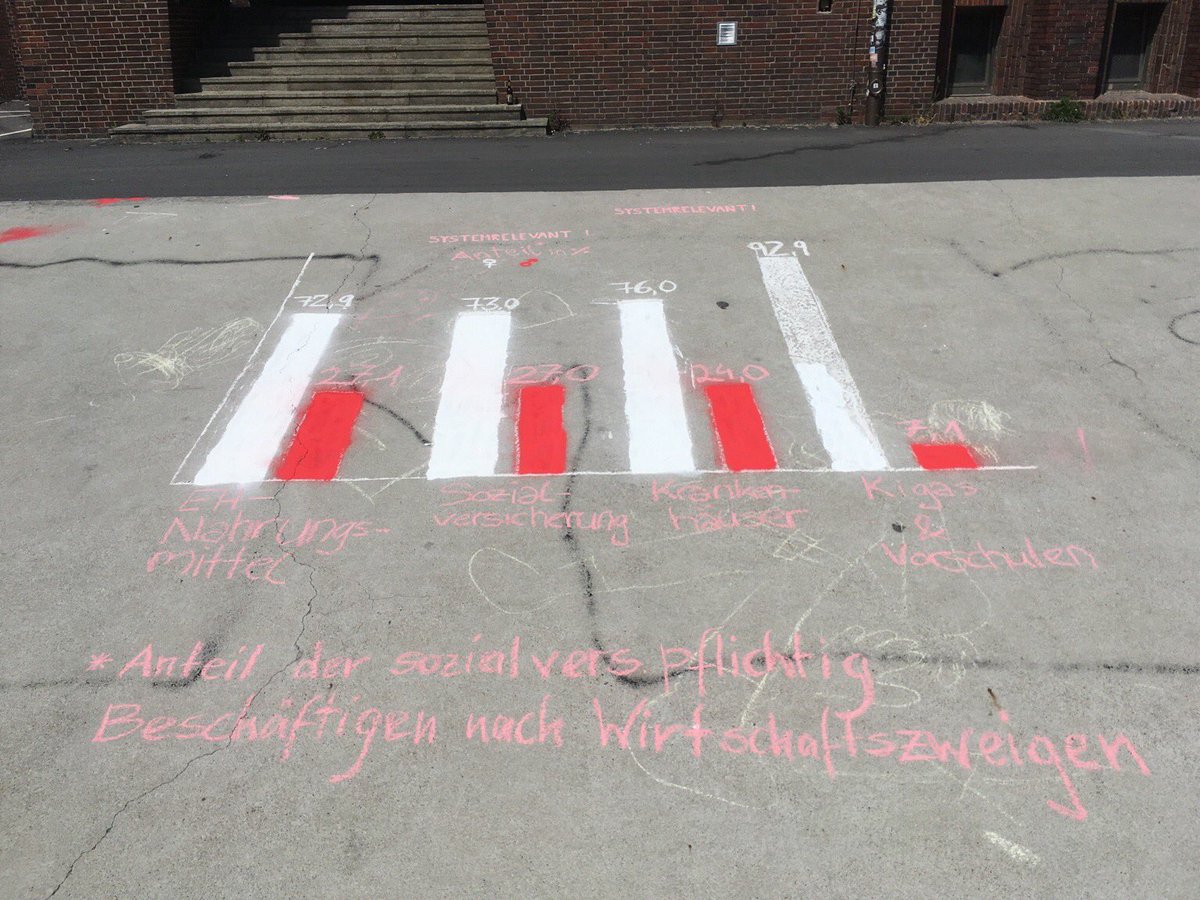 SYSTEMRELEVANT!
SYSTEMRELEVANT!
Anteil* in %
♀ ♂
72,9 27,1 73,0 27,0 76,0 24,0 92,9 7,1
EH-
Nahrungs-
mittel
Sozial-
versicherung
Kranken-
häuser
Kigas
&
Vorschulen
!
* Anteil der sozialverspflichtig
Beschäftigen nach Wirtschaftszweigen